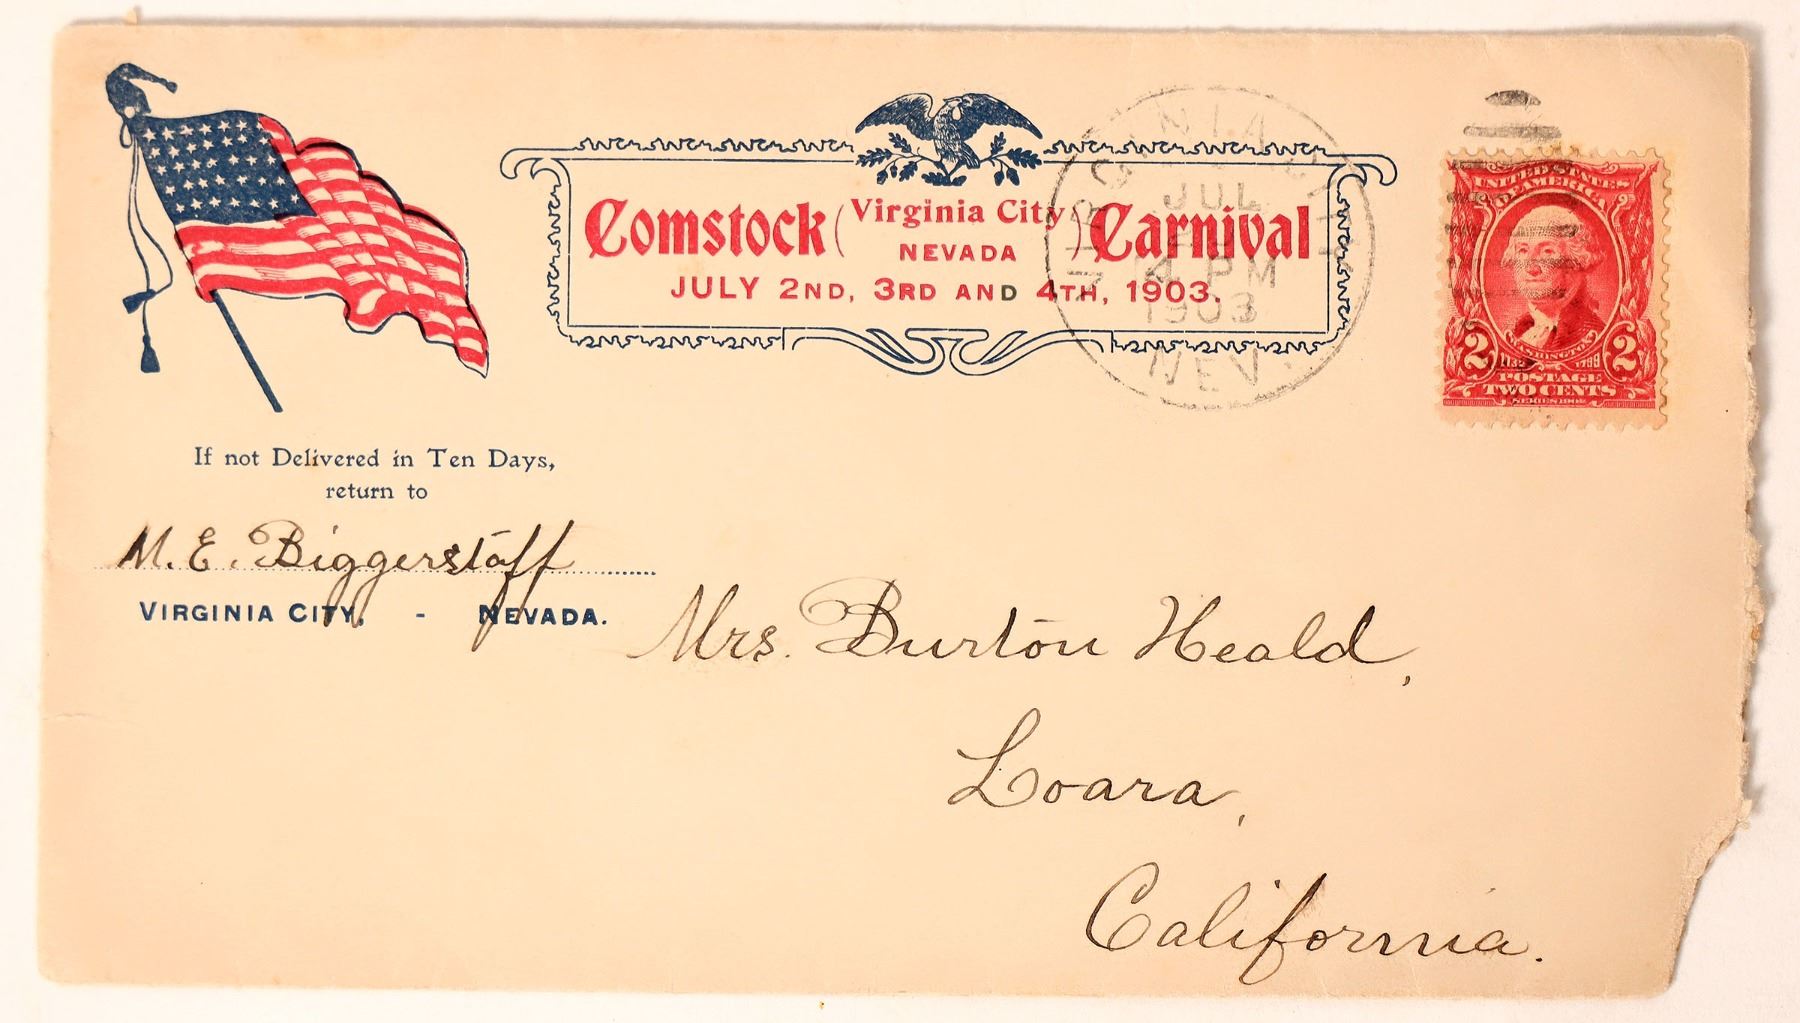 Comstock (Virginia City) Carnival
NEVADA
JULY 2ND, 3RD AND 4TH, 1903.
VIRGINIA CITY
JUL
4 PM
1903
NEV.
UNITED STATES
OF AMERICA
WASHINGTON
1732 1799
2 2
POSTAGE
TWO CENTS
SERIES 1902
If not Delivered in Ten Days,
return to
M. E. Biggerstaff
VIRGINIA CITY, - NEVADA.
Mrs. Burton Heald,
Loara,
California.